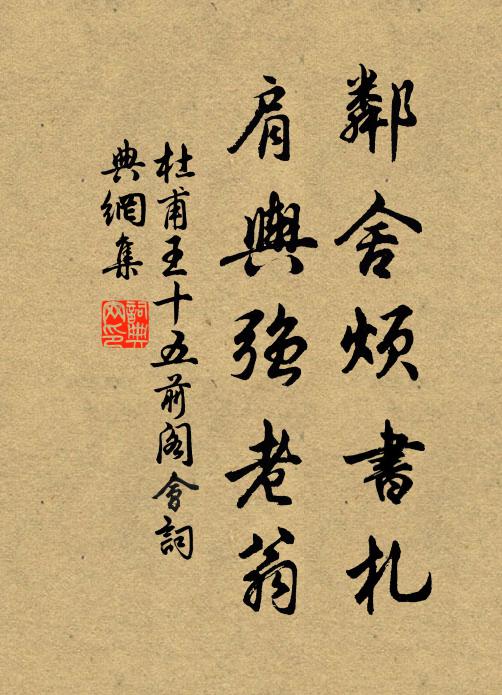 鄰舍煩書札
肩輿強老翁
杜甫王十五前閣會詞
典網集
詞典
網印